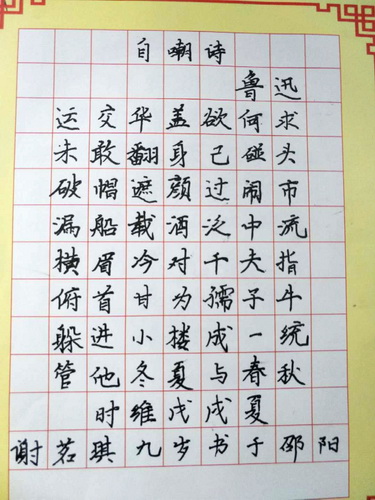 自嘲诗
鲁迅
运交华盖欲何求
未敢翻身已碰头
破帽遮颜过闹市
漏船载酒泛中流
横眉冷对千夫指
俯首甘为孺子牛
躲进小楼成一统
管他冬夏与春秋
时维戊戌夏
谢茗琪九岁书于邵阳